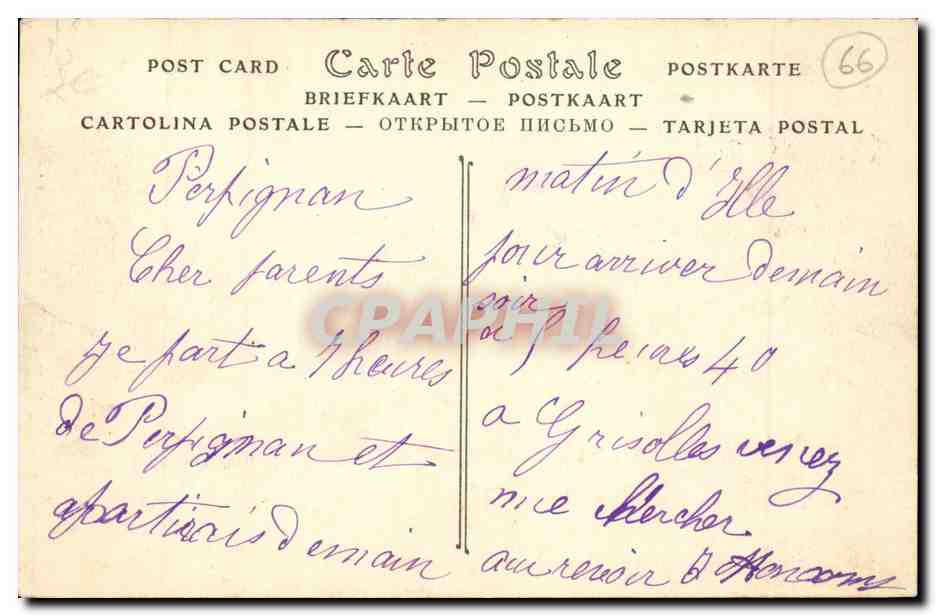 66
POST CARD Carte Postale POSTKARTE
BRIEFKAART — POSTKAART
CARTOLINA POSTALE — ОТКРЫТОЕ ПИСЬМО — TARJETA POSTAL
Perpignan
Cher parents
Je part a 7 heures
de Perpignan et
apartirais demain
matin d'Ille
pour arriver demain
soir
a 5 heures 40
a Grisolles venez
me chercher
au revoir
CPAPHIL